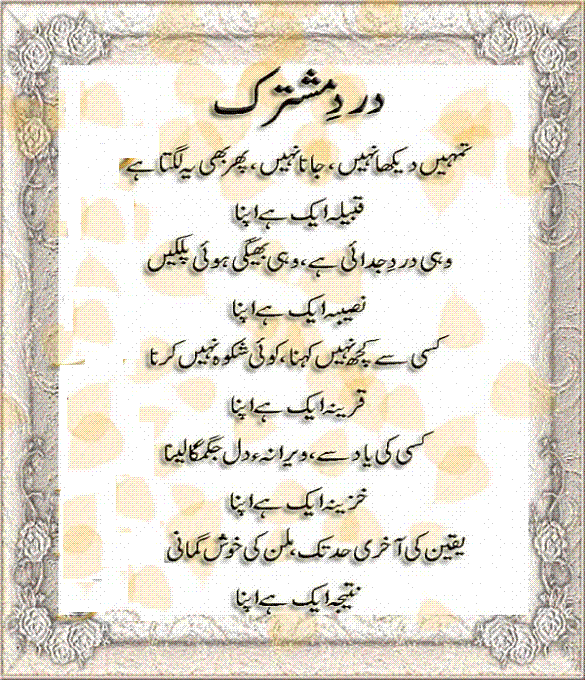 دردِ مشترک
تمہیں دیکھا نہیں ، جانا نہیں ، پھر بھی یہ لگتا ہے
قبیلہ ایک ہے اپنا
وہی دردِ جدائی ہے، وہی بھیگی ہوئی پلکیں
نصیبہ ایک ہے اپنا
کسی سے کچھ نہیں کہنا ، کوئی شکوہ نہیں کرنا
قرینہ ایک ہے اپنا
کسی کی یاد سے، ویرانہء دل جگمگا لینا
خزینہ ایک ہے اپنا
یقین کی آخری حد تک ، ملن کی خوش گمانی
نتیجہ ایک ہے اپنا